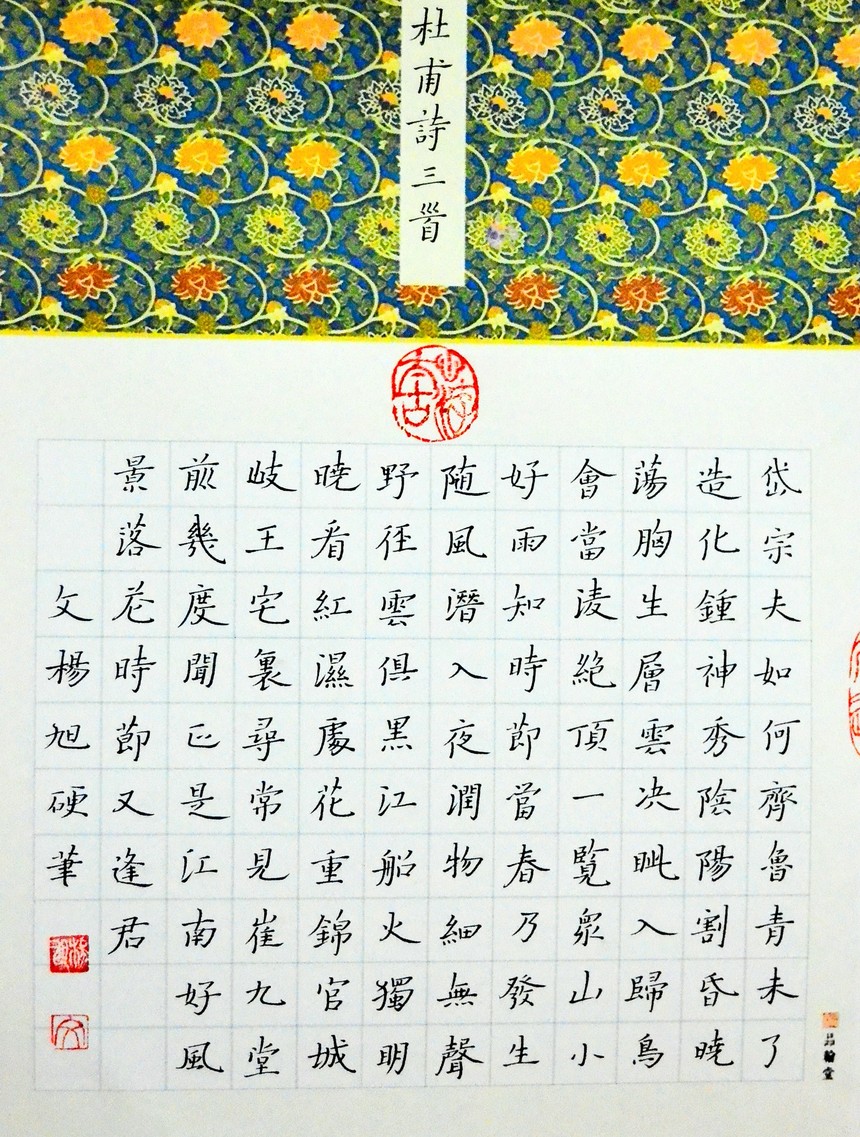 杜甫詩三首
岱宗夫如何齊魯青未了
造化鍾神秀陰陽割昏曉
蕩胸生層雲决眦入歸鳥
會當凌絶頂一覽衆山小
好雨知時節當春乃發生
随風潛入夜潤物細無聲
野徑雲俱黑江船火獨明
曉看紅濕處花重錦官城
岐王宅裏尋常見崔九堂
前幾度聞正是江南好風
景落花時節又逢君
文楊旭硬筆
品翰堂